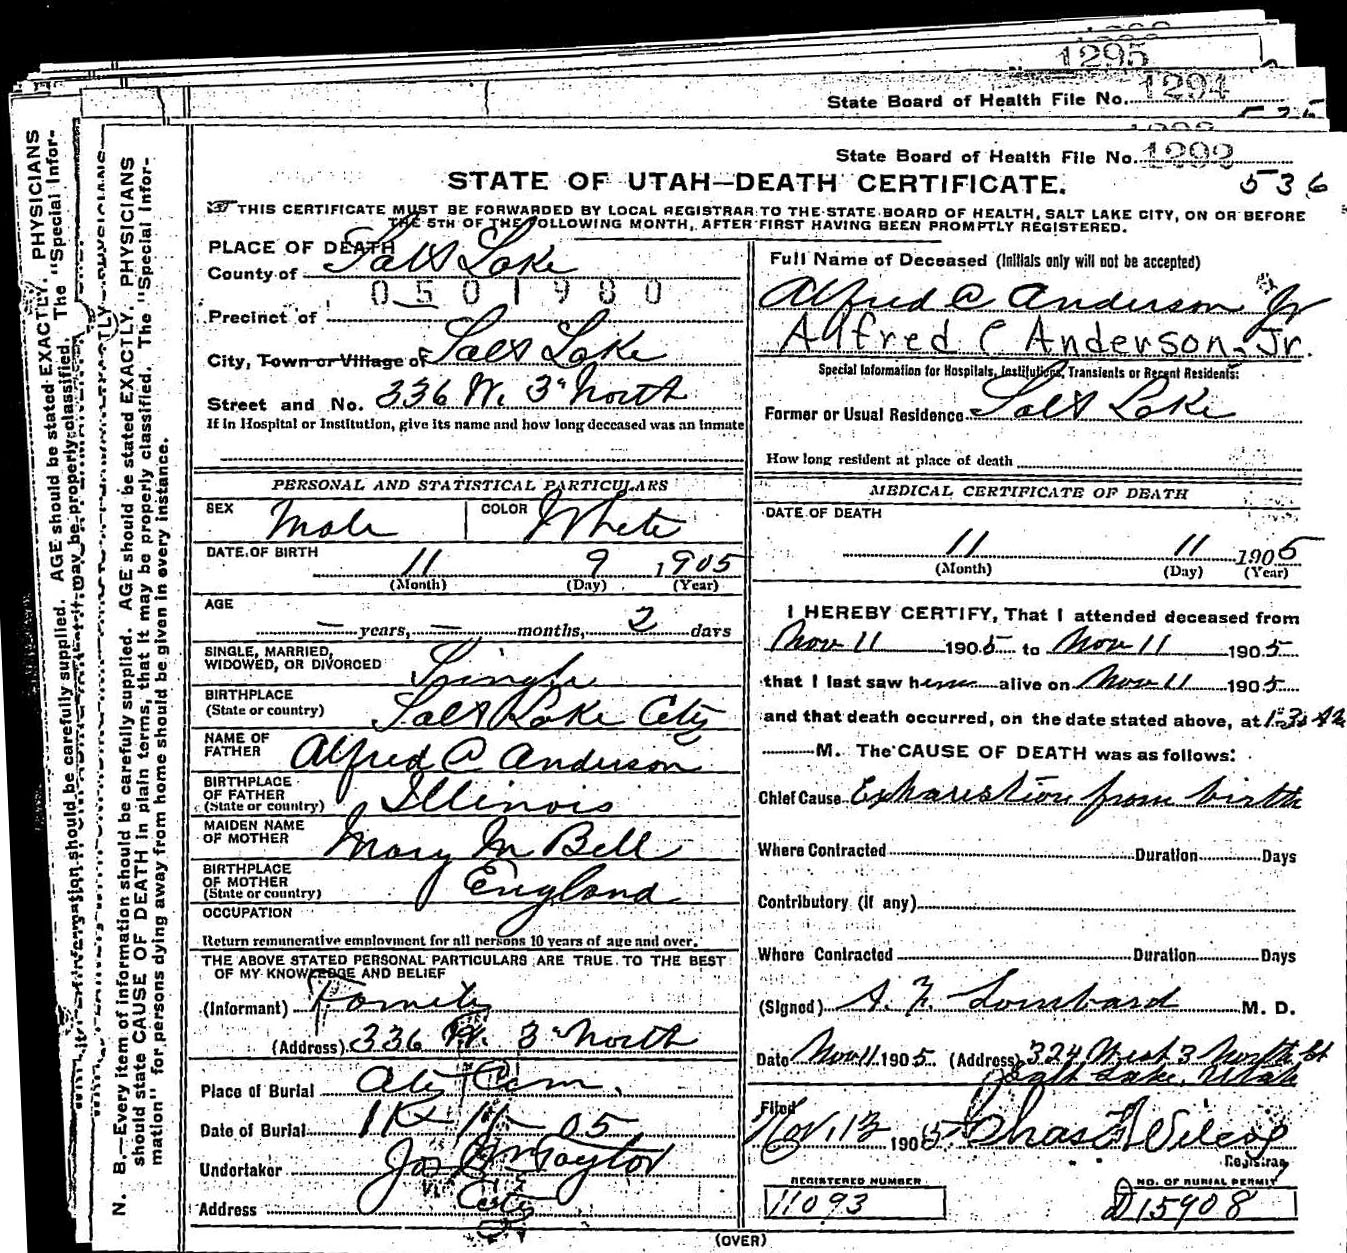 1295
State Board of Health File No. 1294
State Board of Health File No.
536
STATE OF UTAH—DEATH CERTIFICATE.
THIS CERTIFICATE MUST BE FORWARDED BY LOCAL REGISTRAR TO THE STATE BOARD OF HEALTH, SALT LAKE CITY, ON OR BEFORE
THE 5TH OF THE FOLLOWING MONTH, AFTER FIRST HAVING BEEN PROMPTLY REGISTERED.
PLACE OF DEATH
County of Salt Lake
0501980
Precinct of
City, Town or Village of Salt Lake
Street and No. 336 W. 3d North
If in Hospital or Institution, give its name and how long deceased was an inmate
PERSONAL AND STATISTICAL PARTICULARS
SEX Male COLOR White
DATE OF BIRTH
11 9 1905
(Month) (Day) (Year)
AGE
— years, — months, 2 days
SINGLE, MARRIED,
WIDOWED, OR DIVORCED Single
BIRTHPLACE
(State or country) Salt Lake City
NAME OF
FATHER Alfred C Anderson
BIRTHPLACE
OF FATHER
(State or country) Illinois
MAIDEN NAME
OF MOTHER Mary M Bell
BIRTHPLACE
OF MOTHER
(State or country) England
OCCUPATION
Return remunerative employment for all persons 10 years of age and over.
THE ABOVE STATED PERSONAL PARTICULARS ARE TRUE TO THE BEST
OF MY KNOWLEDGE AND BELIEF
(Informant) Family
(Address) 336 W. 3d North
Place of Burial City Cem.
Date of Burial 11-05
Undertaker Jos Taylor
Address City
Full Name of Deceased (Initials only will not be accepted)
Alfred C Anderson Jr
Alfred C Anderson, Jr.
Special Information for Hospitals, Institutions, Transients or Recent Residents:
Former or Usual Residence Salt Lake
How long resident at place of death
MEDICAL CERTIFICATE OF DEATH
DATE OF DEATH
11 11 1905
(Month) (Day) (Year)
I HEREBY CERTIFY, That I attended deceased from
Nov 11 1905 to Nov 11 1905
that I last saw him alive on Nov 11 1905
and that death occurred, on the date stated above, at
M. The CAUSE OF DEATH was as follows:
Chief Cause Exhaustion from birth
Where Contracted Duration Days
Contributory (if any)
Where Contracted Duration Days
(Signed) A. F. Lombard M. D.
Date Nov 11 1905 (Address) 324 West 3 North St
Salt Lake, Utah
Filed
Nov. 13 1905 Chas F Wilcox
Registrar
REGISTERED NUMBER
11093
NO. OF BURIAL PERMIT
D15908
(OVER)
N. B.—Every item of information should be carefully supplied. AGE should be stated EXACTLY. PHYSICIANS
should state CAUSE OF DEATH in plain terms, that it may be properly classified. The "Special Infor-
mation" for persons dying away from home should be given in every instance.